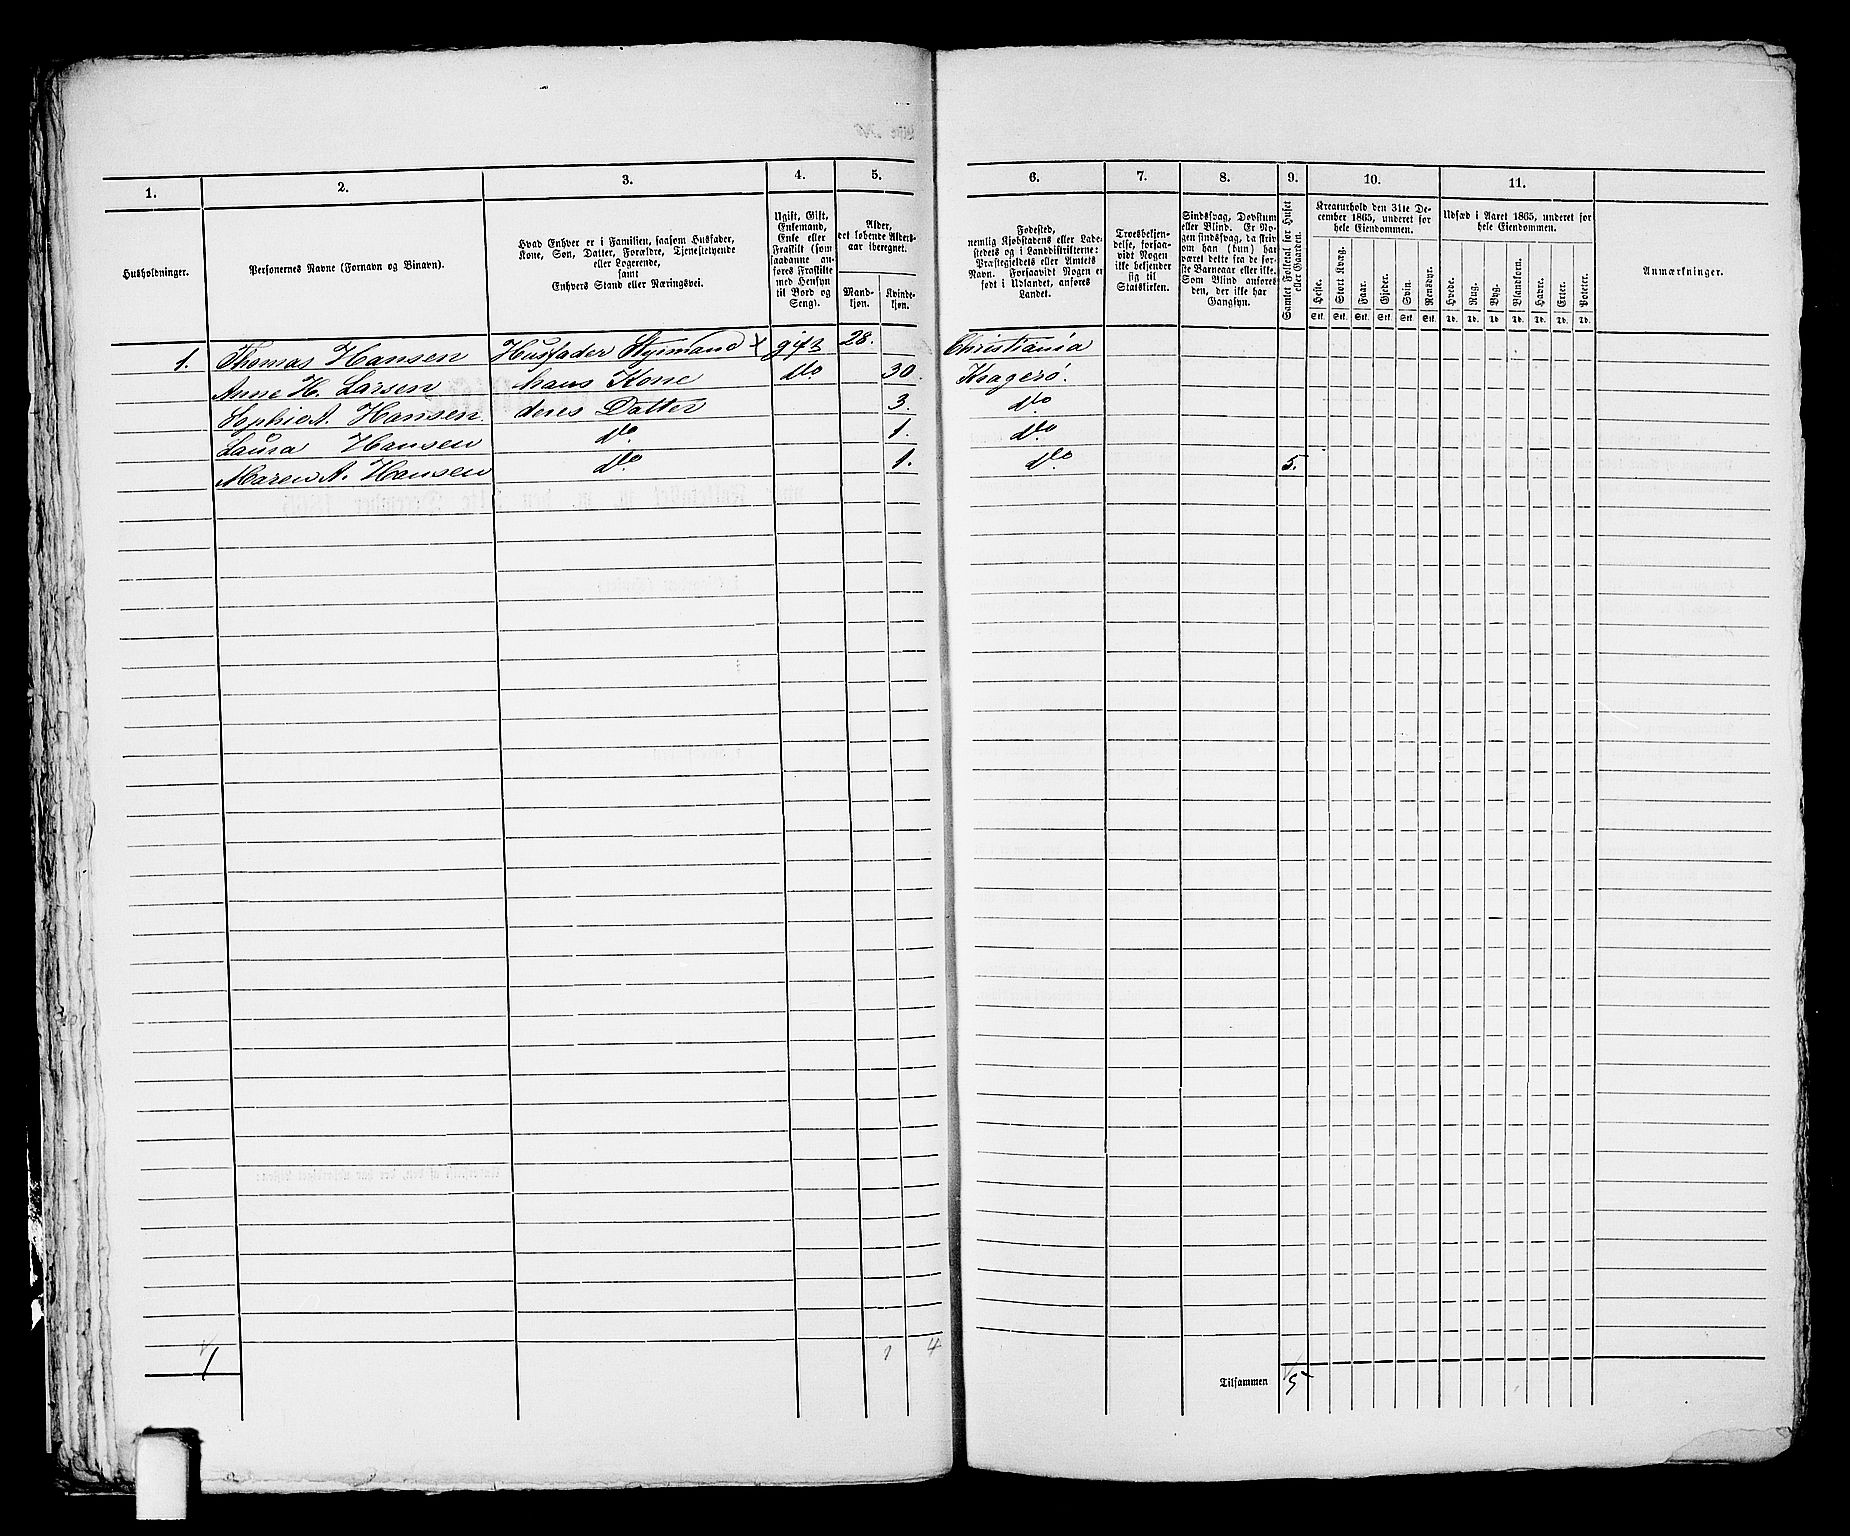 1. 2. 3. 4. 5. 6. 7. 8. 9. 10. 11.
Husholdninger.
Personernes Navne (Fornavn og Binavn).
Hvad Enhver er i Familien, saasom Husfader,
Kone, Søn, Datter, Forældre, Tjenestetyende
eller Logerende,
samt
Enhvers Stand eller Næringsvei.
Ugift, Gift,
Enkemand,
Enke eller
Fraskilt (som
saadanne an-
føres Fraskilte
med Hensyn
til Bord og
Seng).
Alder,
det løbende Alders-
aar iberegnet.
Mand-
kjøn.
Kvinde-
kjøn.
Fødested,
nemlig Kjøbstadens eller Lade-
stedets og i Landdistrikterne:
Præstegjeldets eller Amtets
Navn. Forsaavidt Nogen er
født i Udlandet, anføres
Landet.
Troesbekjen-
delse, forsaa-
vidt Nogen
ikke bekjender
sig til
Statskirken.
Sindssvag, Døvstum
eller Blind. Er No-
gen sindssvag, da skriv
om han (hun) har
været dette fra de før-
ste Barneaar eller ikke.
Som Blind anføres
den, der ikke har
Gangsyn.
Samlet Folketal for Huset
eller Gaarden.
Kreaturhold den 31te De-
cember 1865, underet for
hele Eiendommen.
Heste. Stort Kvæg. Faar. Gjeder. Svin. Rensdyr.
Stk. Stk. Stk. Stk. Stk. Stk.
Udsæd i Aaret 1865, underet for
hele Eiendommen.
Hvede. Rug. Byg. Blandkorn. Havre. Erter. Poteter.
Td. Td. Td. Td. Td. Td. Td.
Anmærkninger.
1. Thomas Hansen Husfader Styrmand x gift 28. Christiania
Anne H. Larsen hans Kone do. 30. Kragerø.
Sophie A. Hansen. deres Datter 3. do.
Laura Hansen do. 1. do.
Maren A. Hansen do. 1. do. 5.
1 1 4
Tilsammen 5